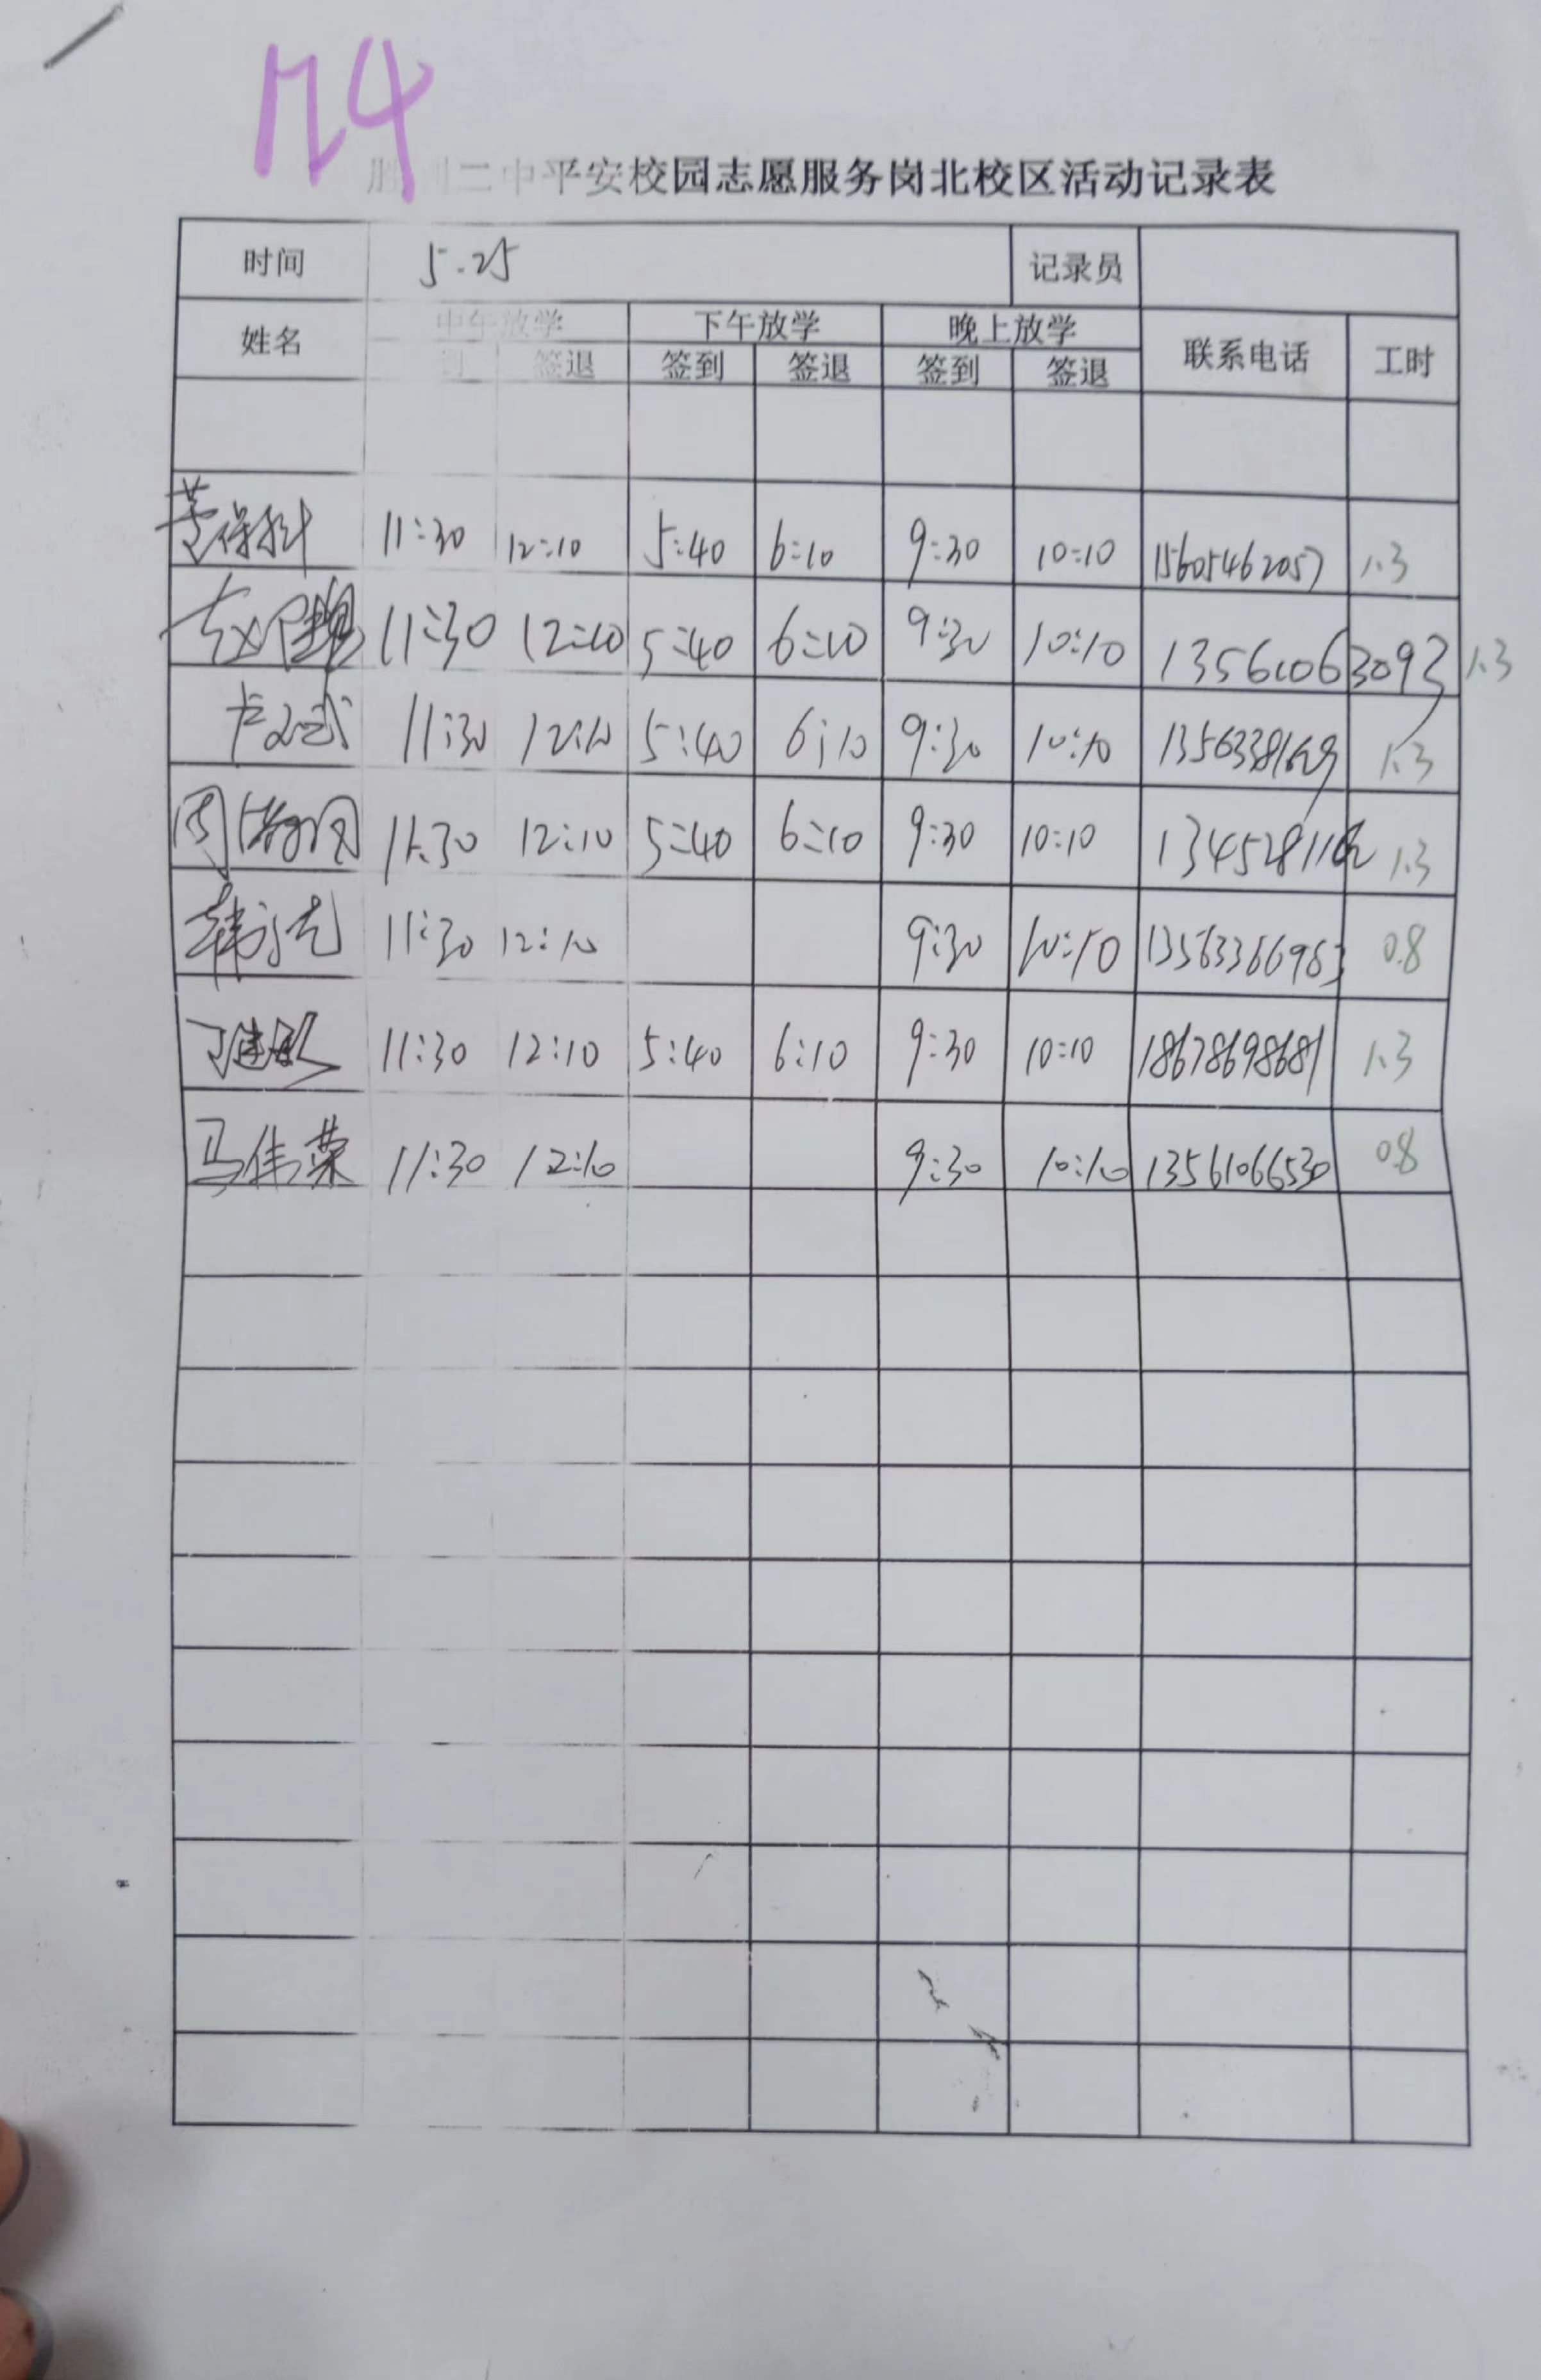 114
二中平安校园志愿服务岗北校区活动记录表
时间 5.25 记录员
姓名 中午放学 下午放学 晚上放学 联系电话 工时
到 签退 签到 签退 签到 签退
11:30 12:10 5:40 6:10 9:30 10:10 15605462057 1.3
11:30 12:10 5:40 6:10 9:30 10:10 13561063093 1.3
11:30 12:10 5:40 6:10 9:30 10:10 1.3
周 11:30 12:10 5:40 6:10 9:30 10:10 1.3
韩 11:30 12:10 9:30 10:10 13563366983 0.8
丁建 11:30 12:10 5:40 6:10 9:30 10:10 18678698681 1.3
马伟荣 11:30 12:10 9:30 10:10 13561066530 0.8